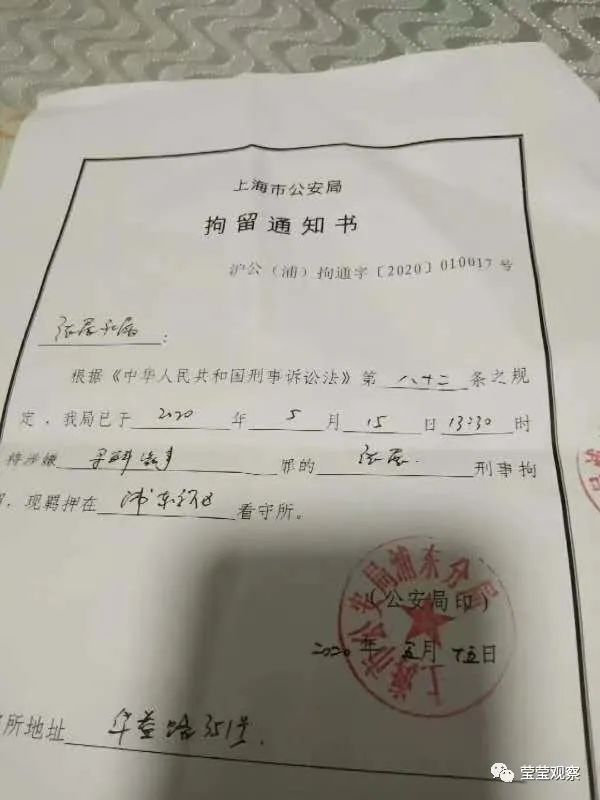 上海市公安局
拘留通知书
沪公（浦）拘通字〔2020〕010017号
张展家属：
根据《中华人民共和国刑事诉讼法》第 八十二 条之规
定，我局已于 2020 年 5 月 15 日 13:30 时
将涉嫌 寻衅滋事 罪的 张展 刑事拘
，现羁押在 浦东新区 看守所。
上海市公安局浦东分局
（公安局印）
2020年 五月 十五日
所地址 华益路351号.
莹莹观察